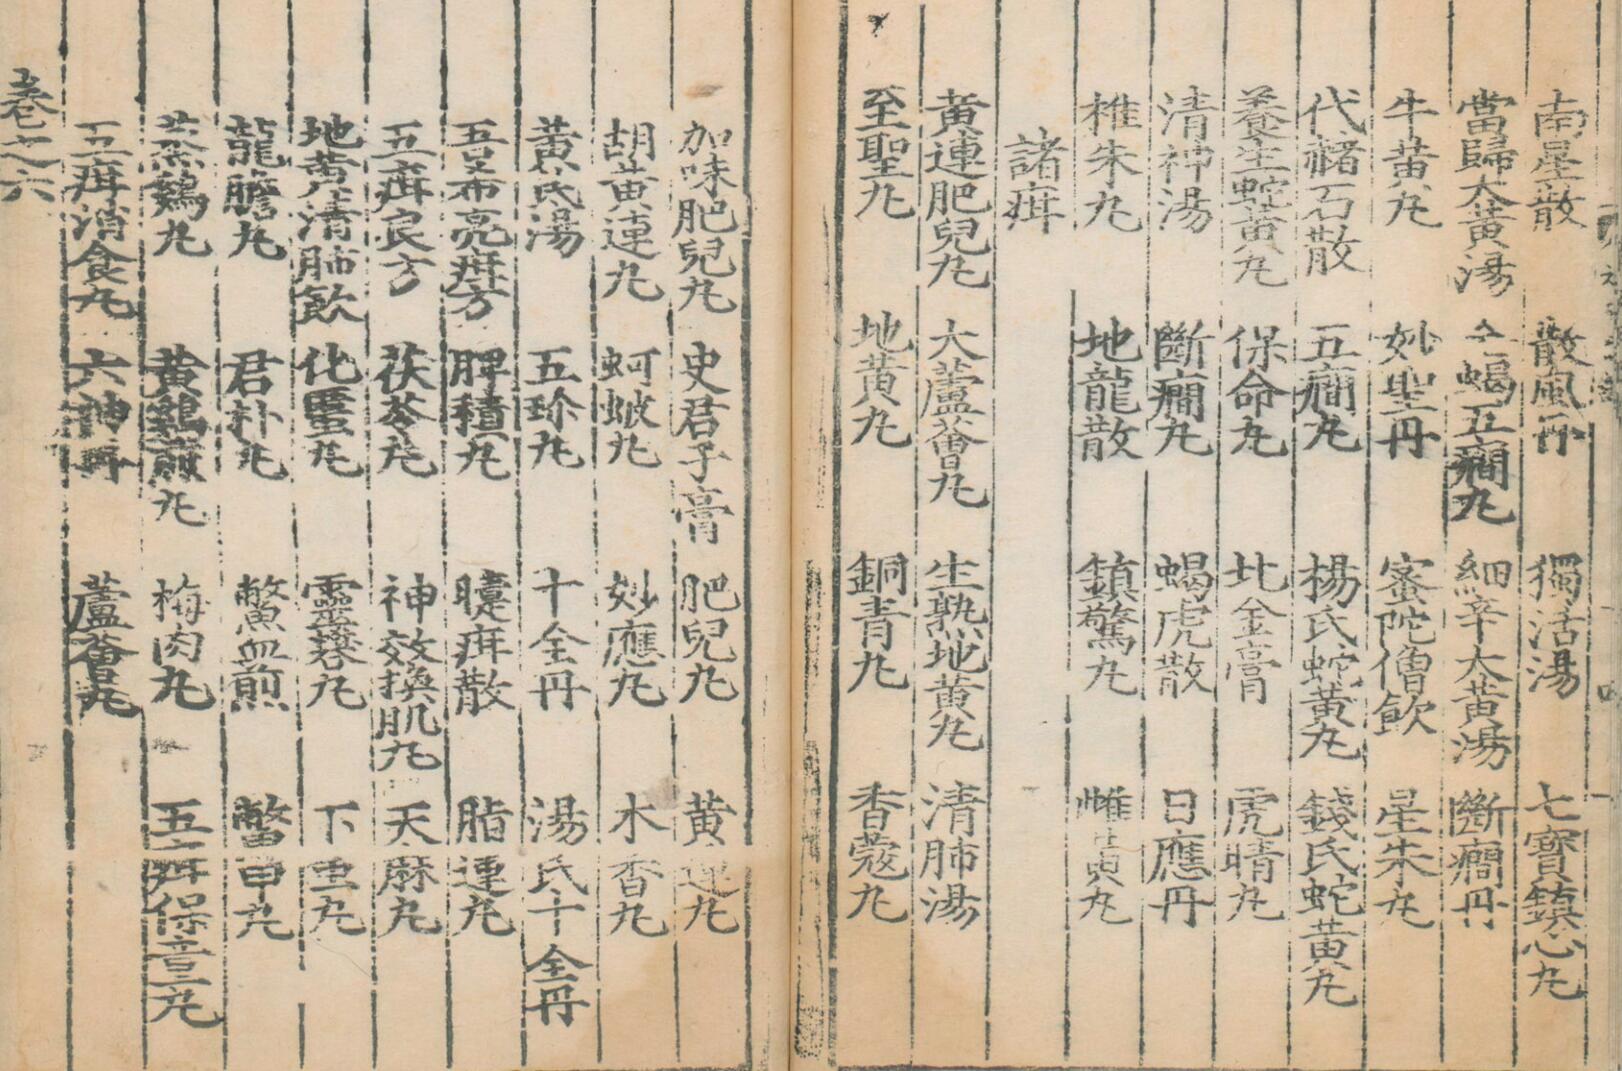 南星散 散風丹 獨活湯 七寶鎮心丸
當歸大黃湯 全蝎五癇丸 細辛大黃湯 斷癇丹
牛黃丸 妙聖丹 蜜陀僧飲 星朱丸
代赭石散 五癇丸 楊氏蛇黃丸 錢氏蛇黃丸
養生蛇黃丸 保命丸 北金膏 虎睛丸
清神湯 斷癇丸 蝎虎散 日應丹
椎朱丸 地龍散 鎮驚丸 雌黃丸
諸疳
黃連肥兒丸 大蘆薈丸 生熟地黃丸 清肺湯
至聖丸 地黃丸 銅青丸 香蔻丸
加味肥兒丸 史君子膏 肥兒丸 黃連丸
胡黃連丸 蚵蚾丸 妙應丸 木香丸
黃芪湯 五珍丸 十全丹 湯氏十全丹
吾呆布亮疳方 脾積丸 疳散 脂連丸
五疳良方 茯苓丸 神效換肌丸 天麻丸
地黃清肺飲 化䘌丸 靈丸 下虫丸
龍膽丸 君朴丸 鱉血煎 鱉甲丸
茶鷄丸 黃鷄煎丸 梅肉丸 五疳保童丸
五疳消食丸 六神丹 蘆薈丸
卷之六